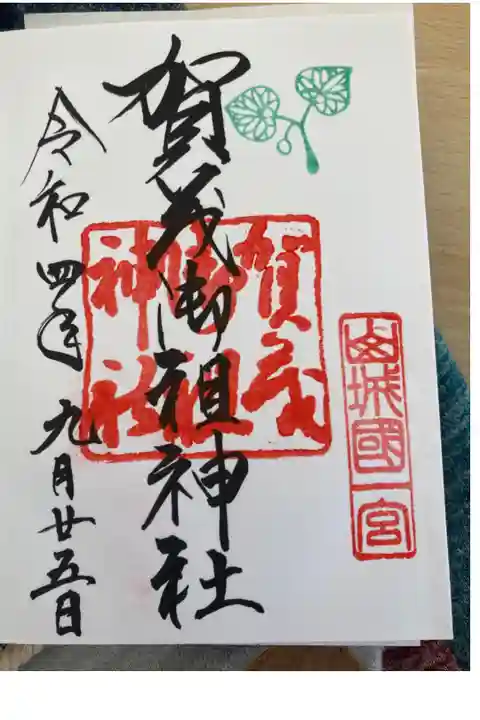 山城國一宮
賀茂御祖神社
賀茂御祖神社
令和四年九月廿五日